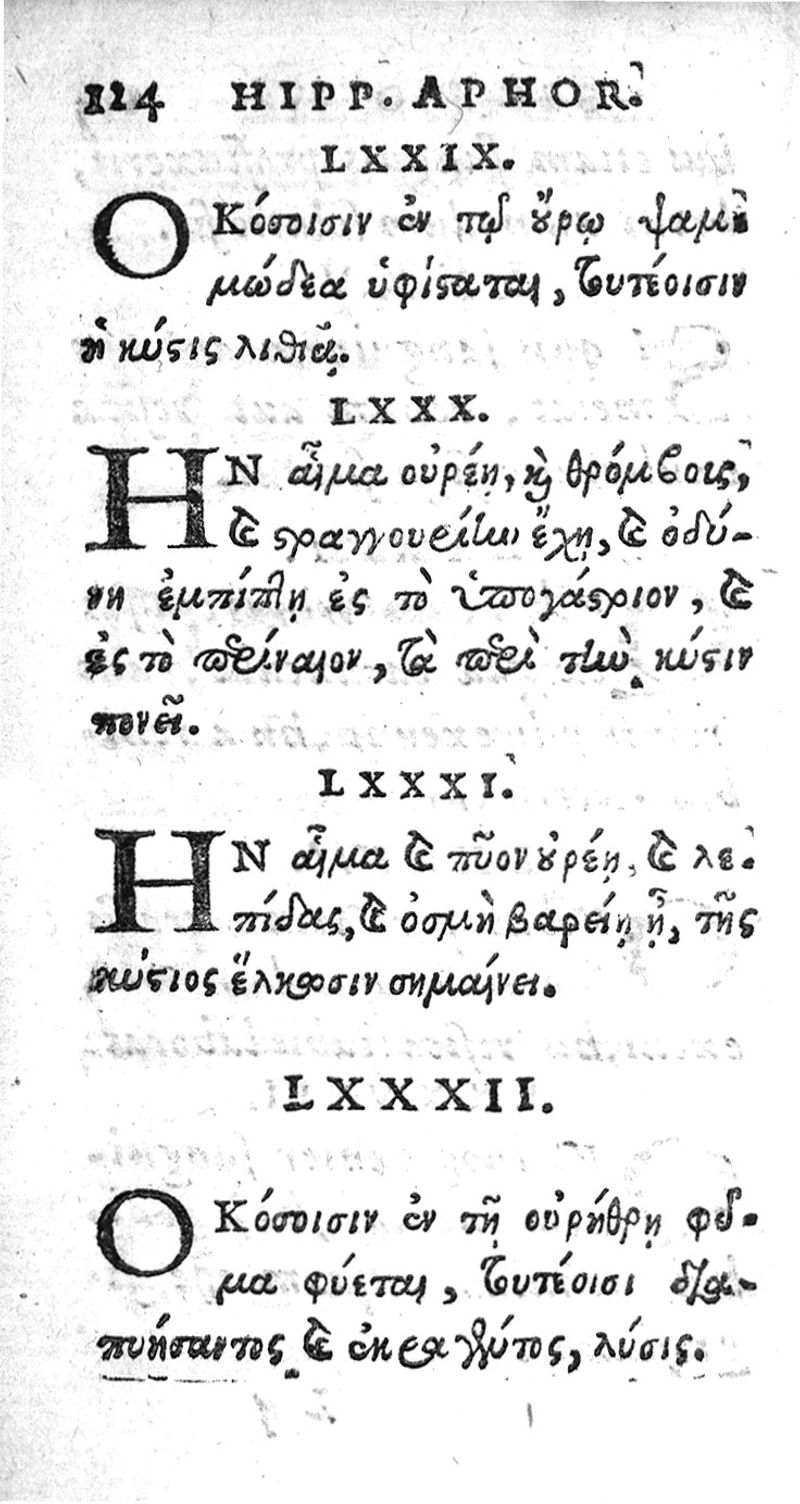 124 HIPP. APHOR.
LXXIX.
ΟΚόσοισιν ἐν τῷ ὄρῳ ψαμ-
μώδεα ὑφίςαται, τουτέοισιν
ἡ κύςις λιθιᾷ.
LXXX.
ΗΝ αἷμα οὐρέῃ, κỳ θρόμβους,
καὶ ςραγγουρίην ἔχῃ, καὶ ὀδύ-
νη ἐμπίπτῃ ἐς τὸ ὑπογάςριον, καὶ
ἐς τὸ περίναιον, τὰ περὶ τὴν κύςιν
πονεῖ.
LXXXI.
ΗΝ αἷμα καὶ πῦον οὐρέῃ, καὶ λε-
πίδας, καὶ ὀσμὴ βαρείη ᾖ, τῆς
κύςιος ἕλκωσιν σημαίνει.
LXXXII.
ΟΚόσοισιν ἐν τῇ οὐρήθρῃ φῦ-
μα φύεται, τουτέοισι δια-
πυήσαντος καὶ ἐκραγέντος, λύσις.